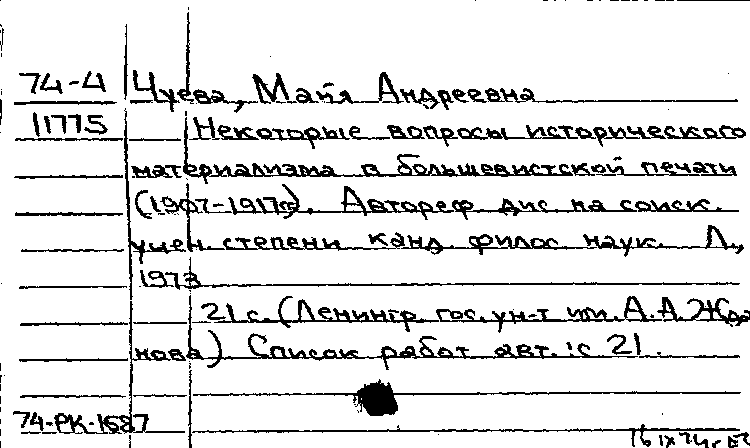 74-4 Чуева, Майя Андреевна
11775 Некоторые вопросы исторического
материализма в большевистской печати
(1907-1917г). Автореф. дис. на соиск.
учен. степени канд. филос. наук. Л.,
1973
21 с. (Ленингр. гос. ун-т им. А.А. Жда
нова). Список работ авт.: с 21.
74-РК-1687